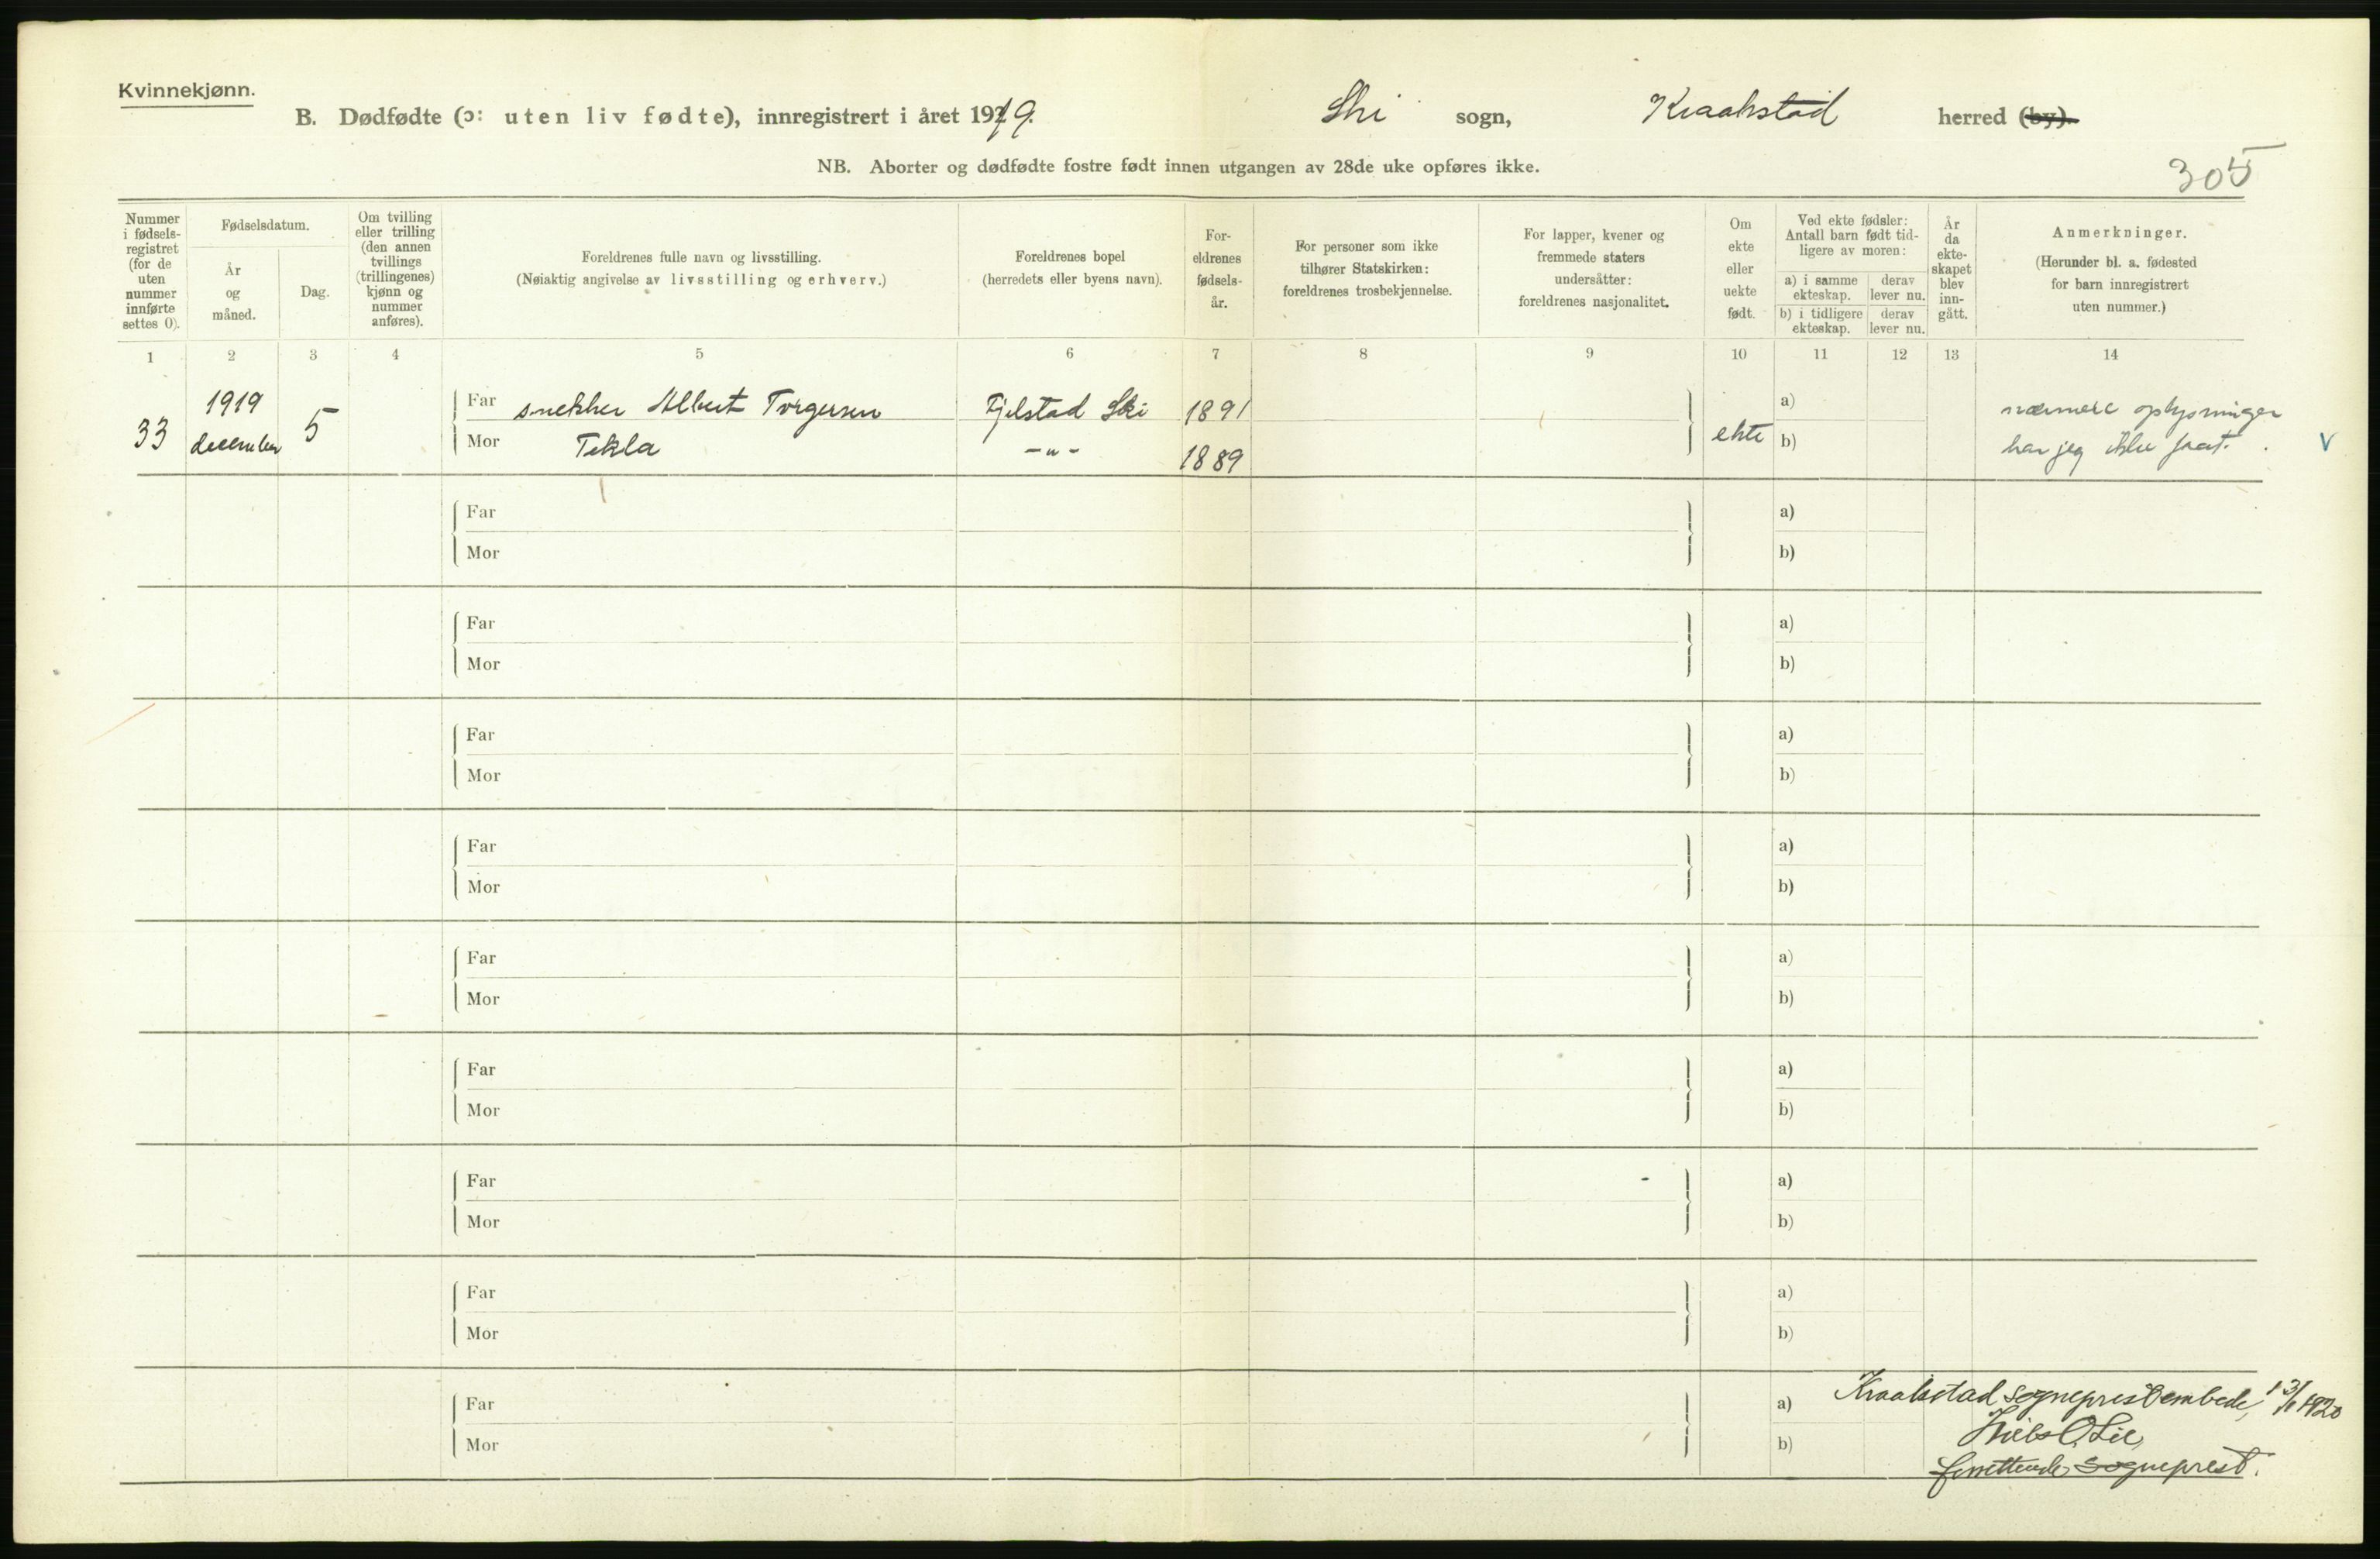 Kvinnekjønn.
B. Dødfødte (ɔ: uten liv fødte), innregistrert i året 1919. Ski sogn, Kraakstad herred (by).
NB. Aborter og dødfødte fostre født innen utgangen av 28de uke opføres ikke.
305
Nummer
i fødsels-
registret
(for de
uten
nummer
innførte
settes 0).
Fødselsdatum.
År
og
måned.
Dag.
Om tvilling
eller trilling
(den annen
tvillings
(trillingenes)
kjønn og
nummer
anføres).
Foreldrenes fulle navn og livsstilling.
(Nøiaktig angivelse av livsstilling og erhverv.)
Foreldrenes bopel
(herredets eller byens navn).
For-
eldrenes
fødsels-
år.
For personer som ikke
tilhører Statskirken:
foreldrenes trosbekjennelse.
For lapper, kvener og
fremmede staters
undersåtter:
foreldrenes nasjonalitet.
Om
ekte
eller
uekte
født.
Ved ekte fødsler:
Antall barn født tid-
ligere av moren:
a) i samme
ekteskap.
derav
lever nu.
b) i tidligere
ekteskap.
derav
lever nu.
År
da
ekte-
skapet
blev
inn-
gått.
Anmerkninger.
(Herunder bl. a. fødested
for barn innregistrert
uten nummer.)
1 2 3 4 5 6 7 8 9 10 11 12 13 14
33
1919
december
5
Far snekker Albert Torgersen Fjelstad Ski 1891 a) nærmere oplysninger
Mor Tekla -"- 1889 ekte b) har jeg ikke faat. V
Far a)
Mor b)
Far a)
Mor b)
Far a)
Mor b)
Far a)
Mor b)
Far a)
Mor b)
Far a)
Mor b)
Far a)
Mor b)
Far a)
Mor b)
Far a) Kraakstad sogneprestembede, 13/1 1920
Mor b) Niels O. Lie
forrettende sogneprest.